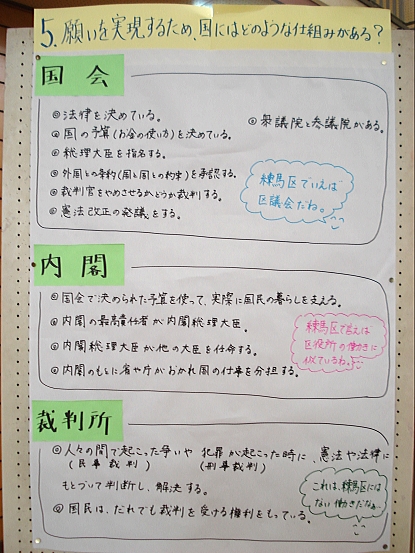 5. 願いを実現するため、国にはどのような仕組みがある?
国会
◎法律を決めている。
◎衆議院と参議院がある。
◎国の予算(お金の使い方)を決めている。
◎総理大臣を指名する。
◎外国との条約(国と国との約束)を承認する。
◎裁判官をやめさせるかどうか裁判する。
◎憲法改正の発議をする。
練馬区でいえば
区議会だね。
内閣
◎国会で決められた予算を使って、実際に国民の暮らしを支える。
◎内閣の最高責任者が内閣総理大臣。
◎内閣総理大臣が他の大臣を任命する。
◎内閣のもとに省や庁がおかれ国の仕事を分担する。
練馬区で言えば
区役所の働きに
似ているね。
裁判所
◎人々の間で起こった争いや 犯罪が起こった時に 憲法や法律に
(民事裁判) (刑事裁判)
もとづいて判断し、解決する。
◎国民は、だれでも裁判を受ける権利をもっている。
これは、練馬区には
ない働きだなぁ…